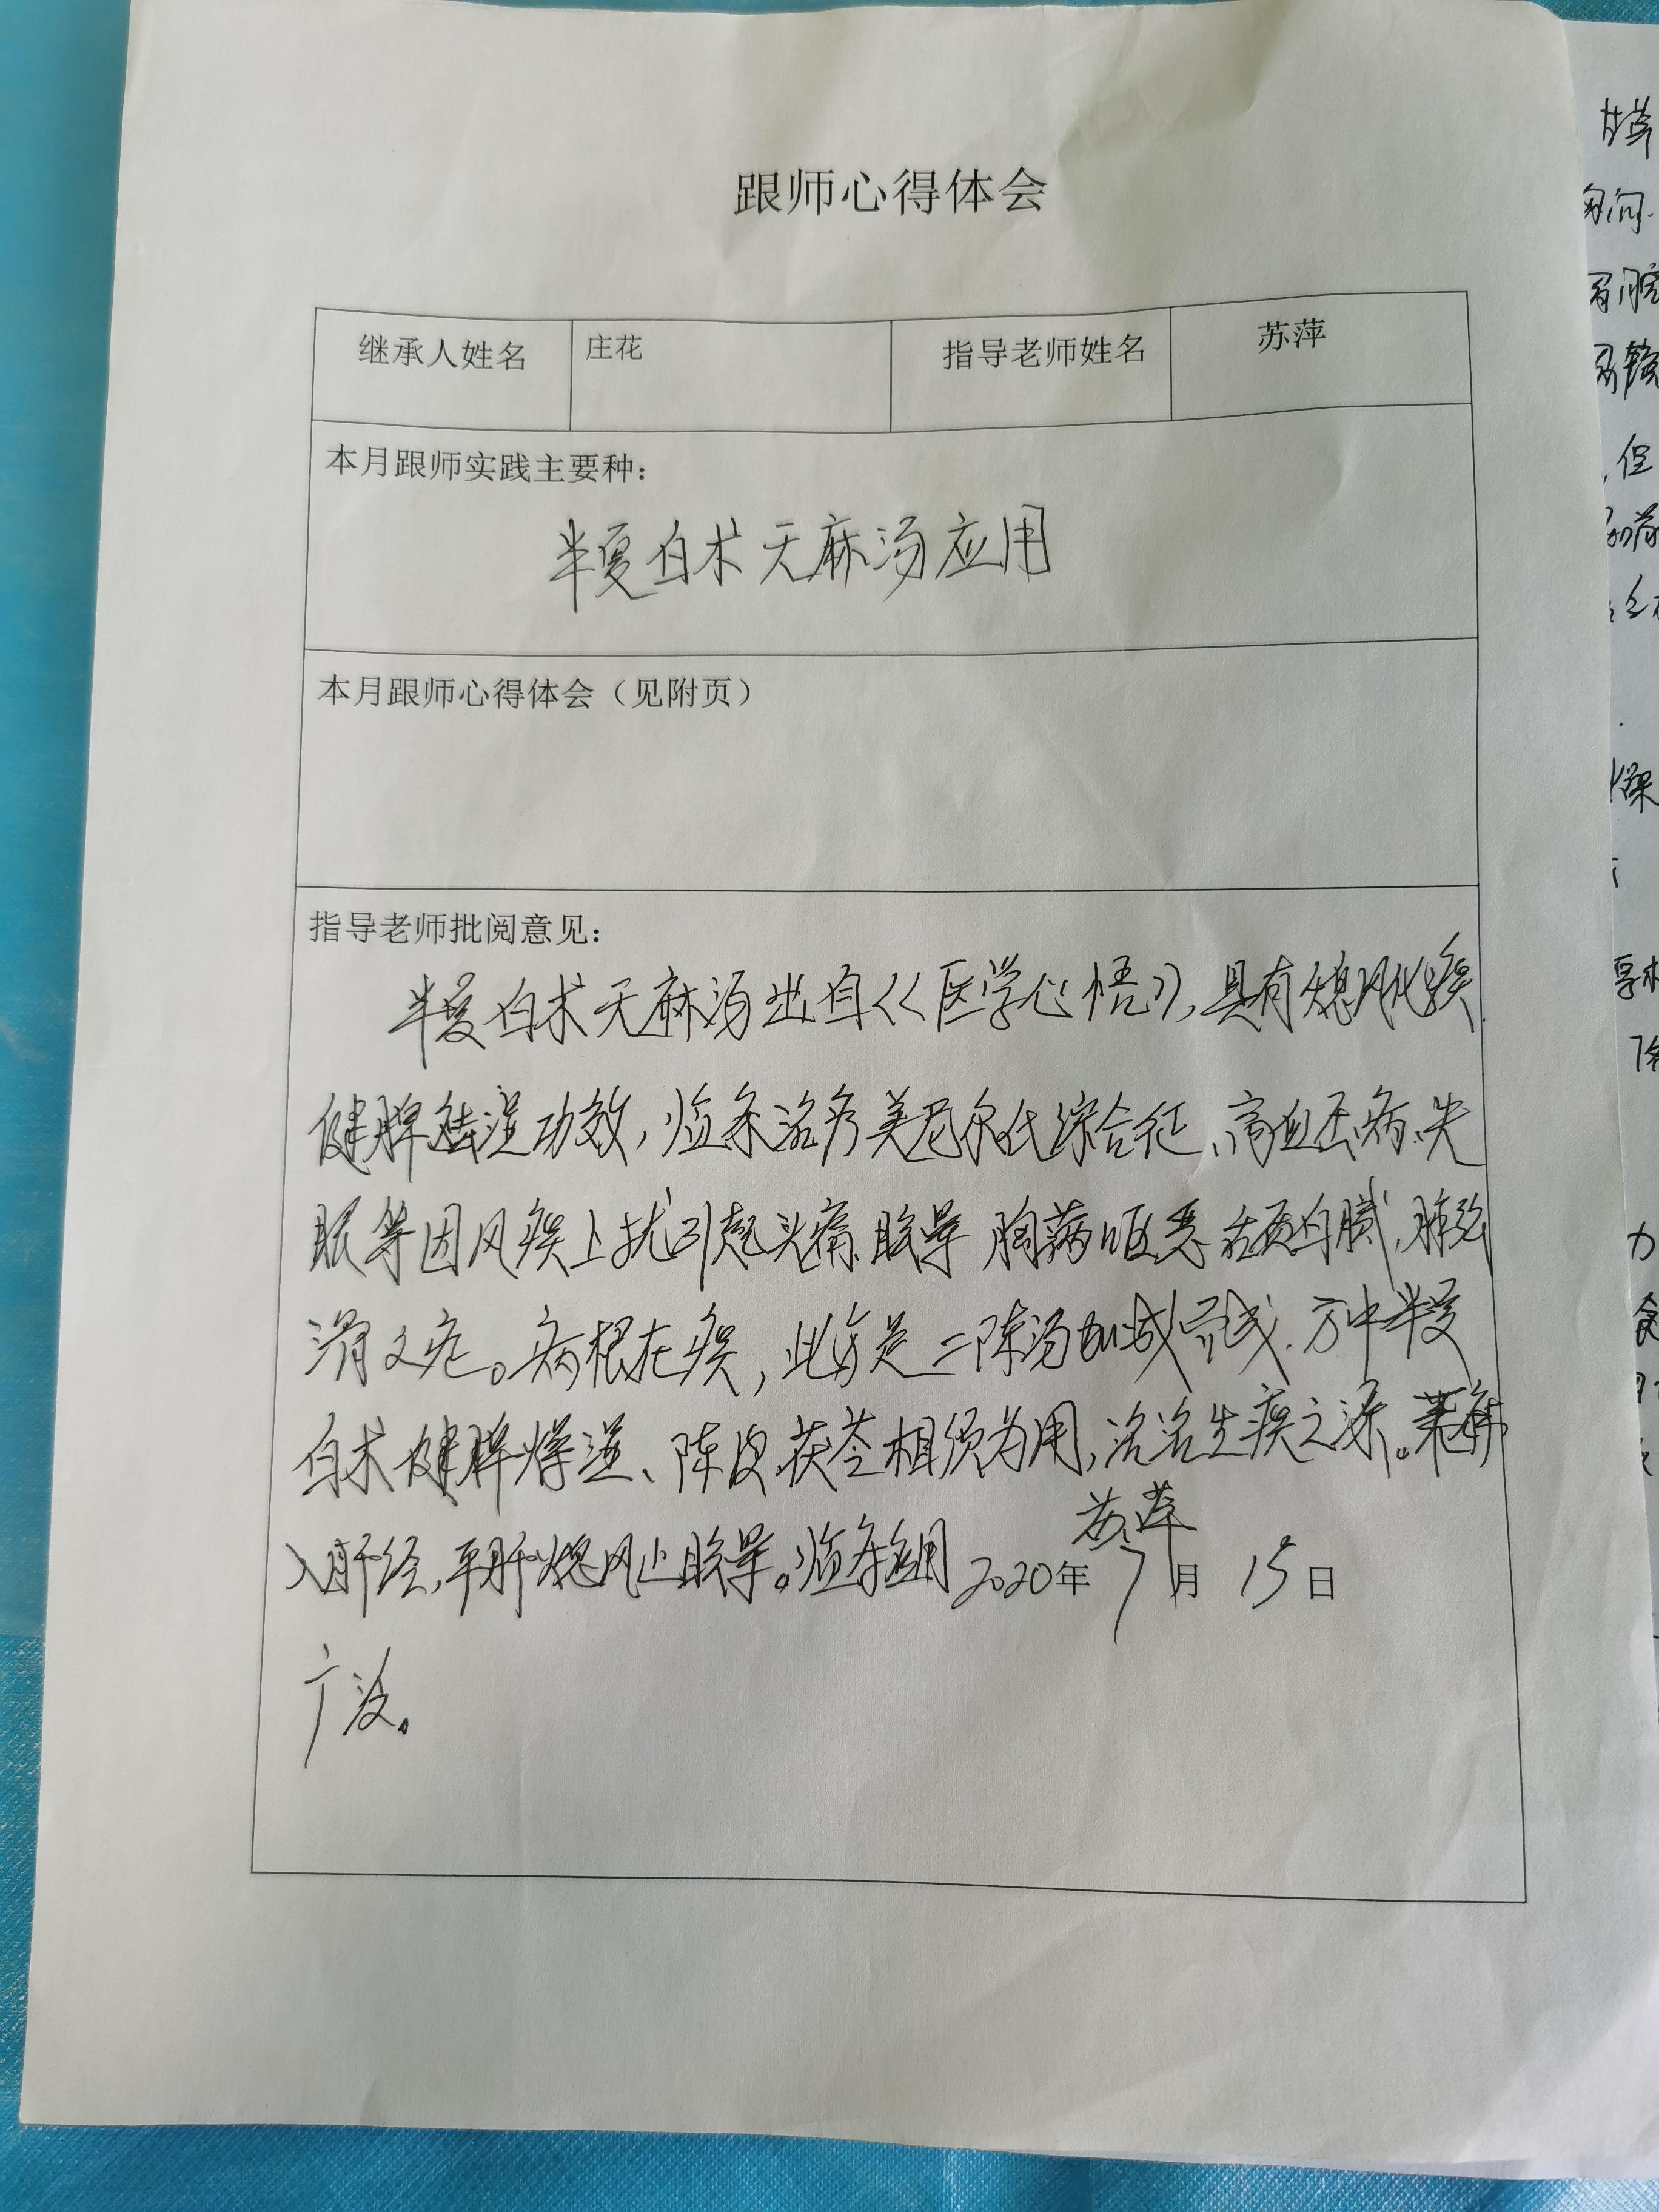 跟师心得体会
继承人姓名 庄花 指导老师姓名 苏萍
本月跟师实践主要种：
半夏白术天麻汤应用
本月跟师心得体会（见附页）
指导老师批阅意见：
半夏白术天麻汤出自《医学心悟》，具有熄风化痰
健脾祛湿功效，临床治疗美尼尔氏综合征、高血压病、失
眠等因风痰上扰引起头痛、眩晕 胸痞 呕恶 舌质白腻，脉弦
滑之症。病根在痰，此方是二陈汤加减而成．方中半夏
白术健脾燥湿、陈皮茯苓相须为用，治生痰之源。天麻
入肝经，平肝熄风止眩晕。临床应用
苏萍
2020年7月15日
广泛。